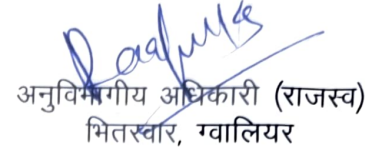 अनुविभागीय अधिकारी (राजस्व)
भितरवार, ग्वालियर